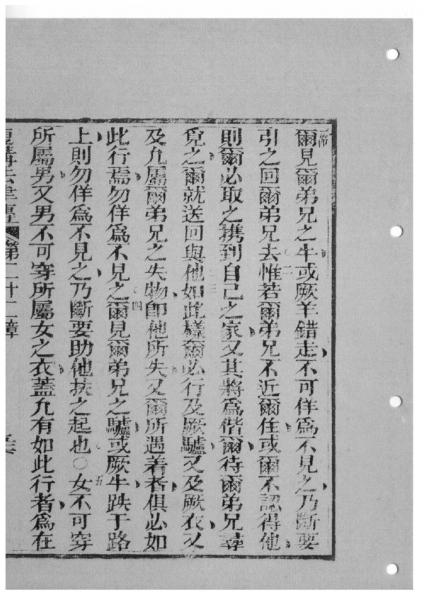 爾見爾弟兄之牛或厥羊錯走不可佯爲不見之乃斷要
引之回爾弟兄去惟若爾弟兄不近爾住或爾不認得他
則爾必取之携到自己之家又其將爲偕爾待爾弟兄尋
覓之爾就送回與他如此樣爾必行及厥驢又及厥衣又
及凡屬爾弟兄之失物卽他所失又爾所遇着者俱必如
此行焉勿佯爲不見之爾見爾弟兄之驢或厥牛跌于路
上則勿佯爲不見之乃斷要助他扶之起也○女不可穿
所屬男又男不可穿所屬女之衣蓋凡有如此行者爲在
第二十二章